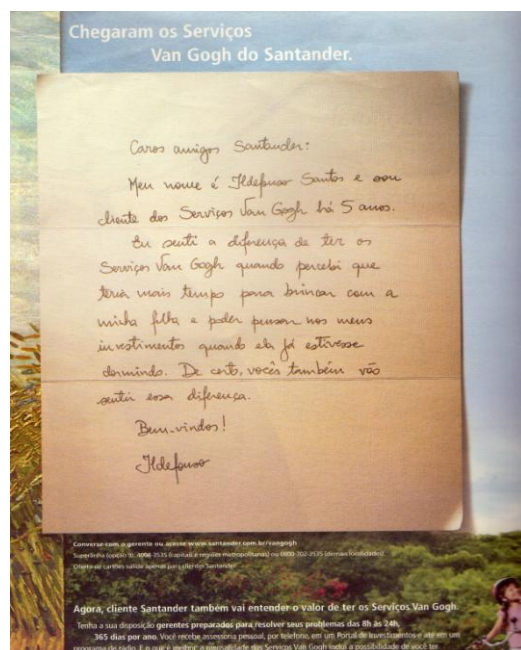 Chegaram os Serviços
Van Gogh do Santander.
Caros amigos Santander:
Meu nome é Ildefonso Santos e sou
cliente dos Serviços Van Gogh há 5 anos.
Eu senti a diferença de ter os
Serviços Van Gogh quando percebi que
teria mais tempo para brincar com a
minha filha e poder pensar nos meus
investimentos quando ela já estivesse
dormindo. De certo, vocês também vão
sentir essa diferença.
Bem-vindos!
Ildefonso
Converse com o gerente ou acesse www.santander.com.br/vangogh
Superlinha (opção 9): 4004-3535 (capitais e regiões metropolitanas) ou 0800-702-3535 (demais localidades).
Oferta de cartões válida apenas para clientes Santander.
Agora, cliente Santander também vai entender o valor de ter os Serviços Van Gogh.
Tenha a sua disposição gerentes preparados para resolver seus problemas das 8h às 24h,
365 dias por ano. Você recebe assessoria pessoal, por telefone, em um Portal de Investimentos e até em um
programa de rádio. E o que é melhor: a mensalidade dos Serviços Van Gogh inclui a possibilidade de você ter